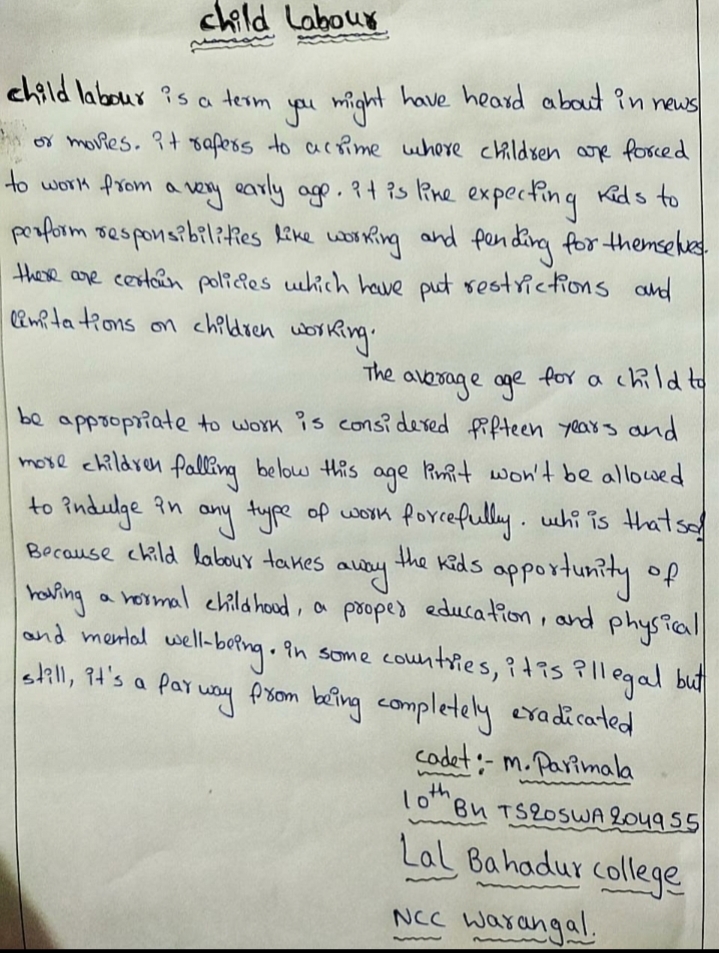 child Labour
child labour is a term you might have heard about in news
or movies. it rafers to a crime where children are forced
to work from a very early age. it is like expecting kids to
perform responsibilities like working and fending for themselves.
there are certain policies which have put restrictions and
limitations on children working.
The average age for a child to
be appropriate to work is considered fifteen years and
more children falling below this age limit won't be allowed
to indulge in any type of work forcefully. whi is that so
Because child labour takes away the kids opportunity of
having a normal childhood, a proper education, and physical
and mental well-being. in some countries, it is illegal but
still, it's a far way from being completely eradicated
cadet :- M. Parimala
10th Bn TS20SWA204955
Lal Bahadur college
NCC Warangal.